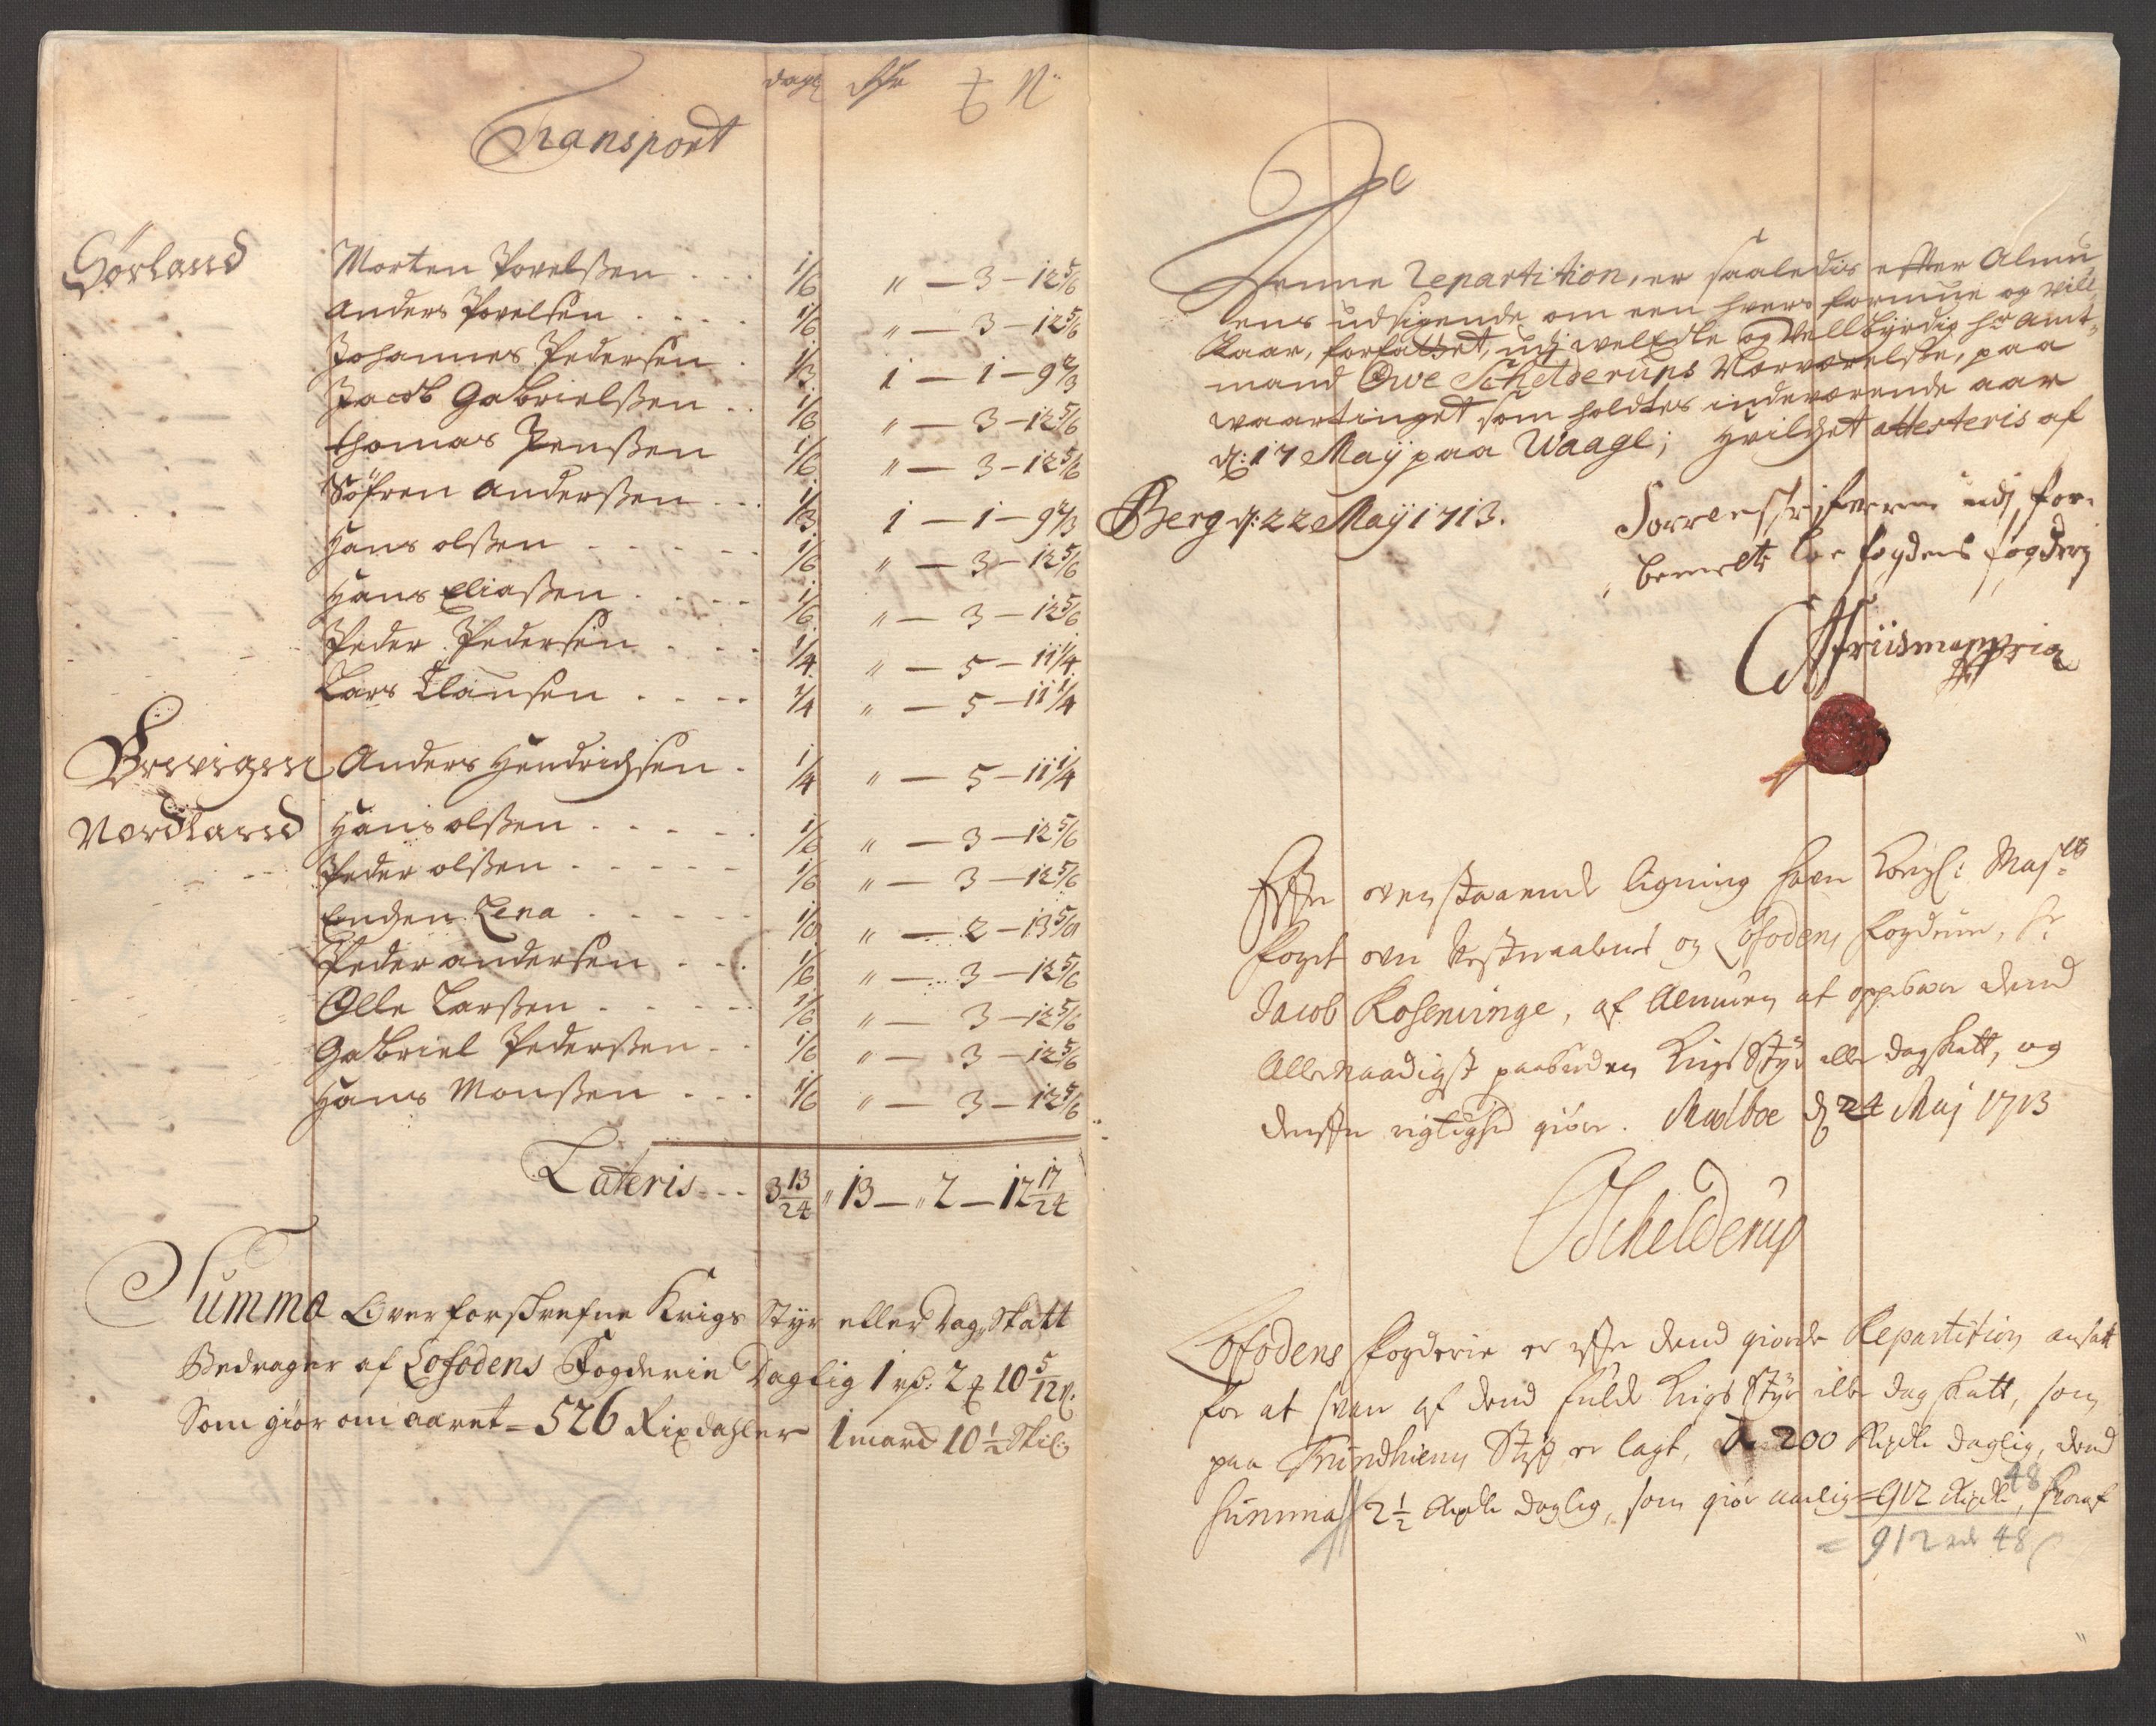 dagl
Transport
Sørland Morten Povelssen . . . 1/6 " — 3 — 12 5/6
Anders Povelsen . . . . 1/6 " — 3 — 12 5/6
Johannes Pedersen . 1/3 1 — 1 — 9 2/3
Jacob Gabrielssen . . 1/6 " — 3 — 12 5/6
Thomas Jenssen 1/6 " — 3 — 12 5/6
Søfren Anderssen . . . 1/3 1 — 1 — 9 2/3
Hans olssen . . . . . 1/6 " — 3 — 12 5/6
Hans Eliassen . . . . 1/6 " — 3 — 12 5/6
Peder Pedersen . . . 1/4 " — 5 — 11 1/4
Lars Clausen . . . . 1/4 " — 5 — 11 1/4
Anders Hendrichsen . 1/4 " — 5 — 11 1/4
Nordland Hans olssen . . . . . 1/6 " — 3 — 12 5/6
Peder olssen . . . . . 1/6 " — 3 — 12 5/6
Enchen Lena . . . . . 1/8 " — 2 — 13 5/8
Peder andersen . . . 1/6 " — 3 — 12 5/6
Olle Larssen . . . . . 1/6 " — 3 — 12 5/6
Gabriel Pederssen . . 1/6 " — 3 — 12 5/6
Hans Monssen . . . 1/6 " — 3 — 12 5/6
Lateris . . . 3 13/24 " 13 — " 2 — 12 17/24
Summa Ower forschrefne Krigs Styr eller Dag Skatt
Bedrager af Lofodens Fogderie Daglig 1 rd: 2 10 5/12
Som giør om aaret = 526 Rixdahler 1 march 10 1/2 Skil:
Denne Repartition, er saaledis efter Almu
ens udsigende om een hvers formue og vill
kaar, forfattet, udj welEdle og Wellbyrdig hr Amt-
mand Owe Schelderups Nærværelse, paa
waartinget som holdtes indeværende aar
d: 17 Maij paa Waage; hvilchet attesteris af
Berg d: 22 Maij 1713. Sorrenskrifveren udj for-
bemelte fogderj
Efter ovenstaaende ligning haver Kongl: Maj:ts
foget over Vestraalens og Lofodens fogderier, Sr
Jacob Rosenvinge, af Almuen at oppebære dend
Allernaadigst paabuden Krigs Styr eller dag skatt, og
derfor rigtighed giøre. Madboe d 24 Maj 1713
OSchelderup
Lofodens fogderie er efter dend giorde Repartition ansatt
for at svare af dend fulde Krigs Styr eller dag skatt, som
paa Trundhiems Stift er lagt, 200 Rixdlr daglig, dend
Summa 2 1/2 Rixdlr daglig, som giør aarlig = 912 Rixdlr 48, hvoraf
= 912 rdr 48